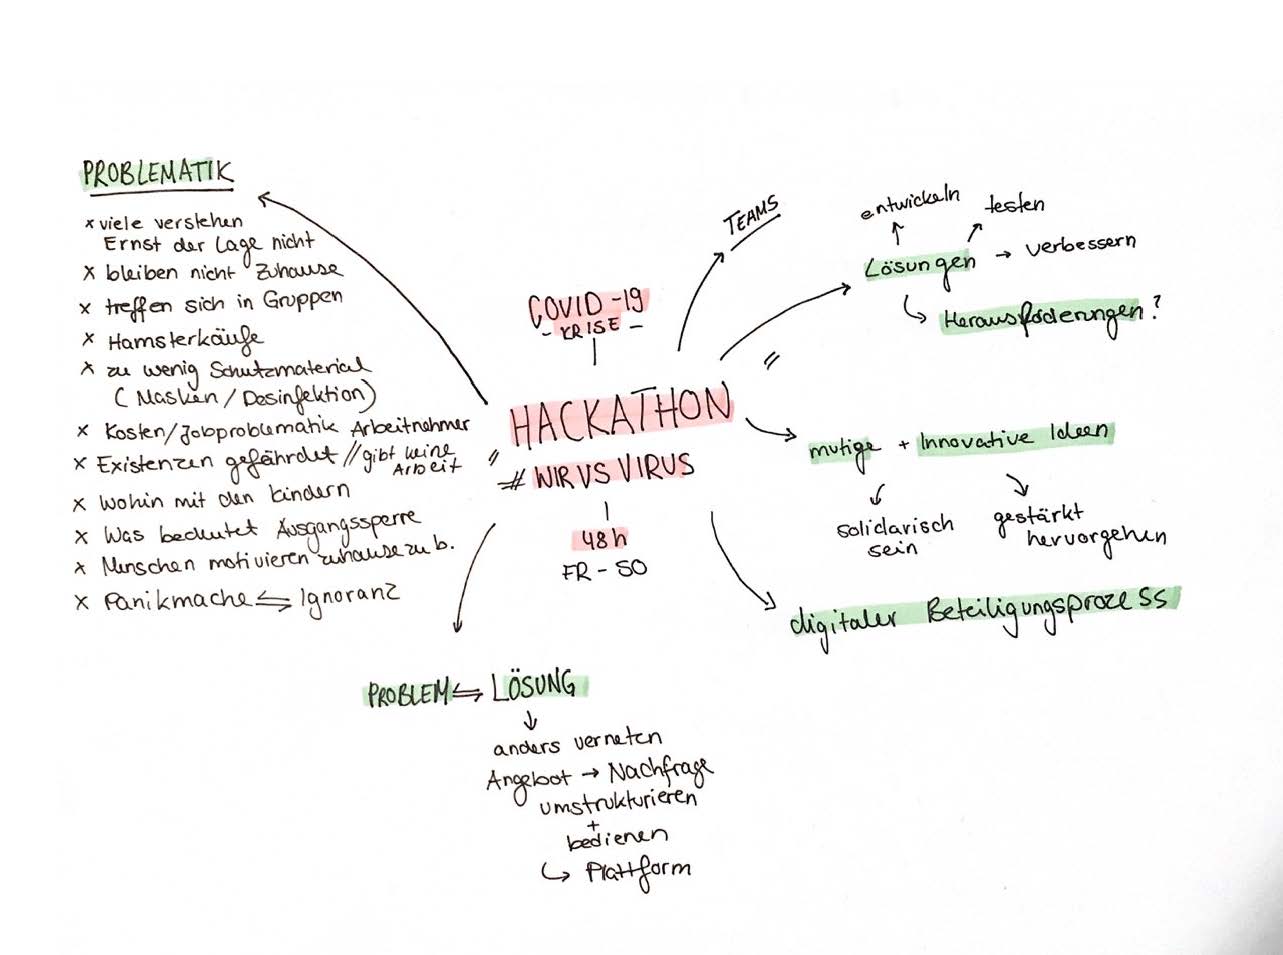 PROBLEMATIK
x viele verstehen
Ernst der Lage nicht
x bleiben nicht Zuhause
x treffen sich in Gruppen
x Hamsterkäufe
x zu wenig Schutzmaterial
(Masken/Desinfektion)
x Kosten/Jobproblematik Arbeitnehmer
x Existenzen gefährdet // gibt keine
Arbeit
x Wohin mit den Kindern
x Was bedeutet Ausgangssperre
x Menschen motivieren zuhause zu b.
x Panikmache ⇆ Ignoranz
COVID-19
- KRISE -
HACKATHON
# WIRVSVIRUS
48h
FR - SO
TEAMS
entwickeln
testen
Lösungen → verbessern
↳ Herausfoderungen?
mutige + Innovative Ideen
solidarisch
sein
gestärkt
hervorgehen
digitaler Beteiligungsprozess
PROBLEM ⇆ LÖSUNG
↓
anders verneten
Angebot → Nachfrage
umstrukturieren
+
bedienen
↳ Plattform